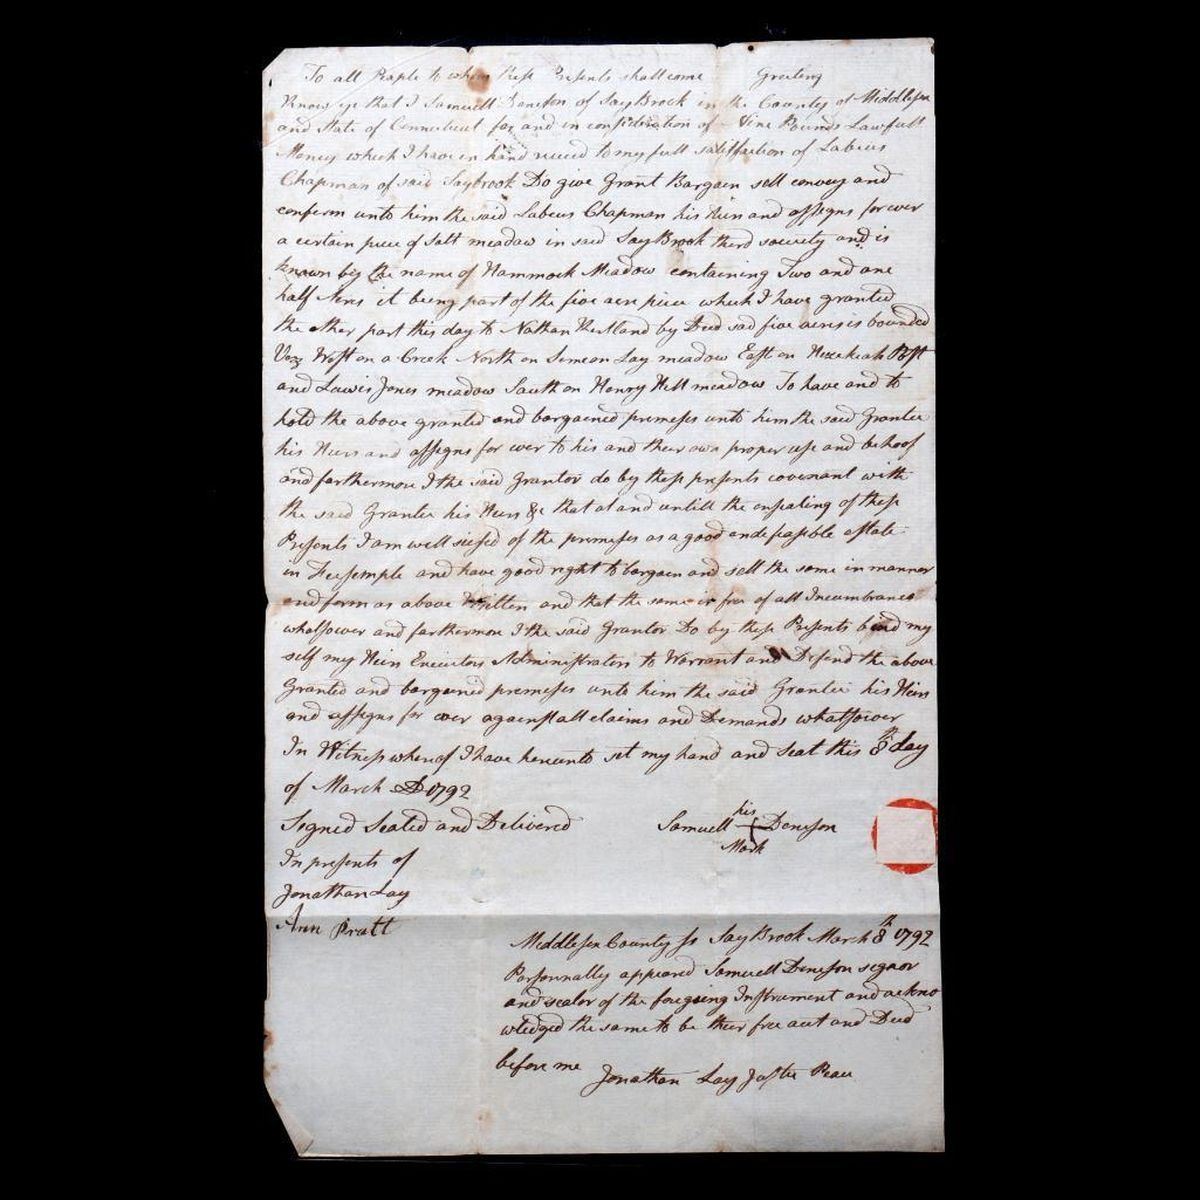 To all People to whom these Presents shall come Greeting
Know ye that I Samuell Deneson of SayBrook in the County of Middlesex
and State of Connecticut for and in consideration of Nine Pounds Lawfull
Money which I have in hand receed to my full satisfaction of Labeus
Chapman of said Saybrook Do give Grant Bargain sell convey and
confirm unto him the said Labeus Chapman his Heirs and assigns forever
a certain piece of Salt meadow in said SayBrook third society and is
known by the name of Hammock Meadow containing Two and one
half Acres it being part of the five acre piece which I have granted
the other part this day to Nathan Kirtland by Deed sad five acres is bounded
Vez West on a Creek North on Simeon Lay meadow East on Hezekiah Post
and Lewis Jones meadow South on Henry Hill meadow To have and to
hold the above granted and bargained premeses unto him the said Grantee
his Heirs and assigns for ever to his and their own proper use and behoof
and farthermore I the said Grantor do by these presents covenant with
the said Grantee his Heirs &c that at and untill the ensealing of these
Presents I am well seised of the premeses as a good endefeasible estate
in Feesemple and have good right to bargain and sell the same in manner
and form as above Written and that the same is free of all Incumbrance
whatsoever and farthermore I the said Grantor Do by these Presents bind my
self my Heirs Executors Administrators to Warrant and Defend the above
Granted and bargained premeses unto him the said Grantee his Heirs
and assigns for ever against all claims and Demands whatsoever
In Witness whereof I have hereunto set my hand and Seal this 8th day
of March AD 1792
Signed Sealed and Delivered
In presents of
Jonathan Lay
Ann Pratt
his
Samuell + Deneson
Mark
Middlesex County ss SayBrook March 8th 1792
Parsonnally appeared Samuell Deneson signor
and sealor of the foregoing Instrument and ackno
wledged the same to be their free act and Deed
before me Jonathan Lay Juste Peace